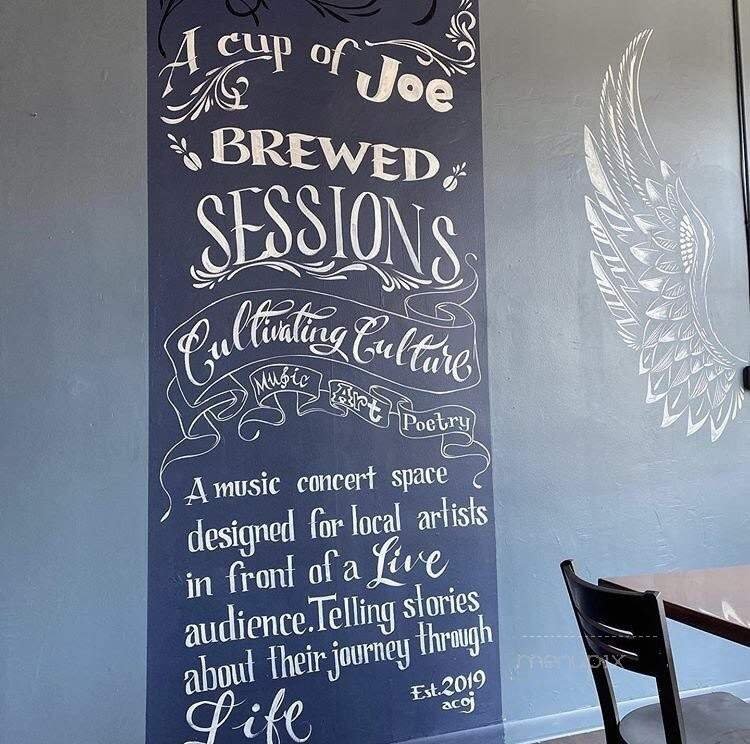 A cup of Joe
BREWED
SESSIONS
Cultivating Culture
Music Art Poetry
A music concert space
designed for local artists
in front of a Live
audience. Telling stories
about their journey through
Life
Est. 2019
acoj
menupix